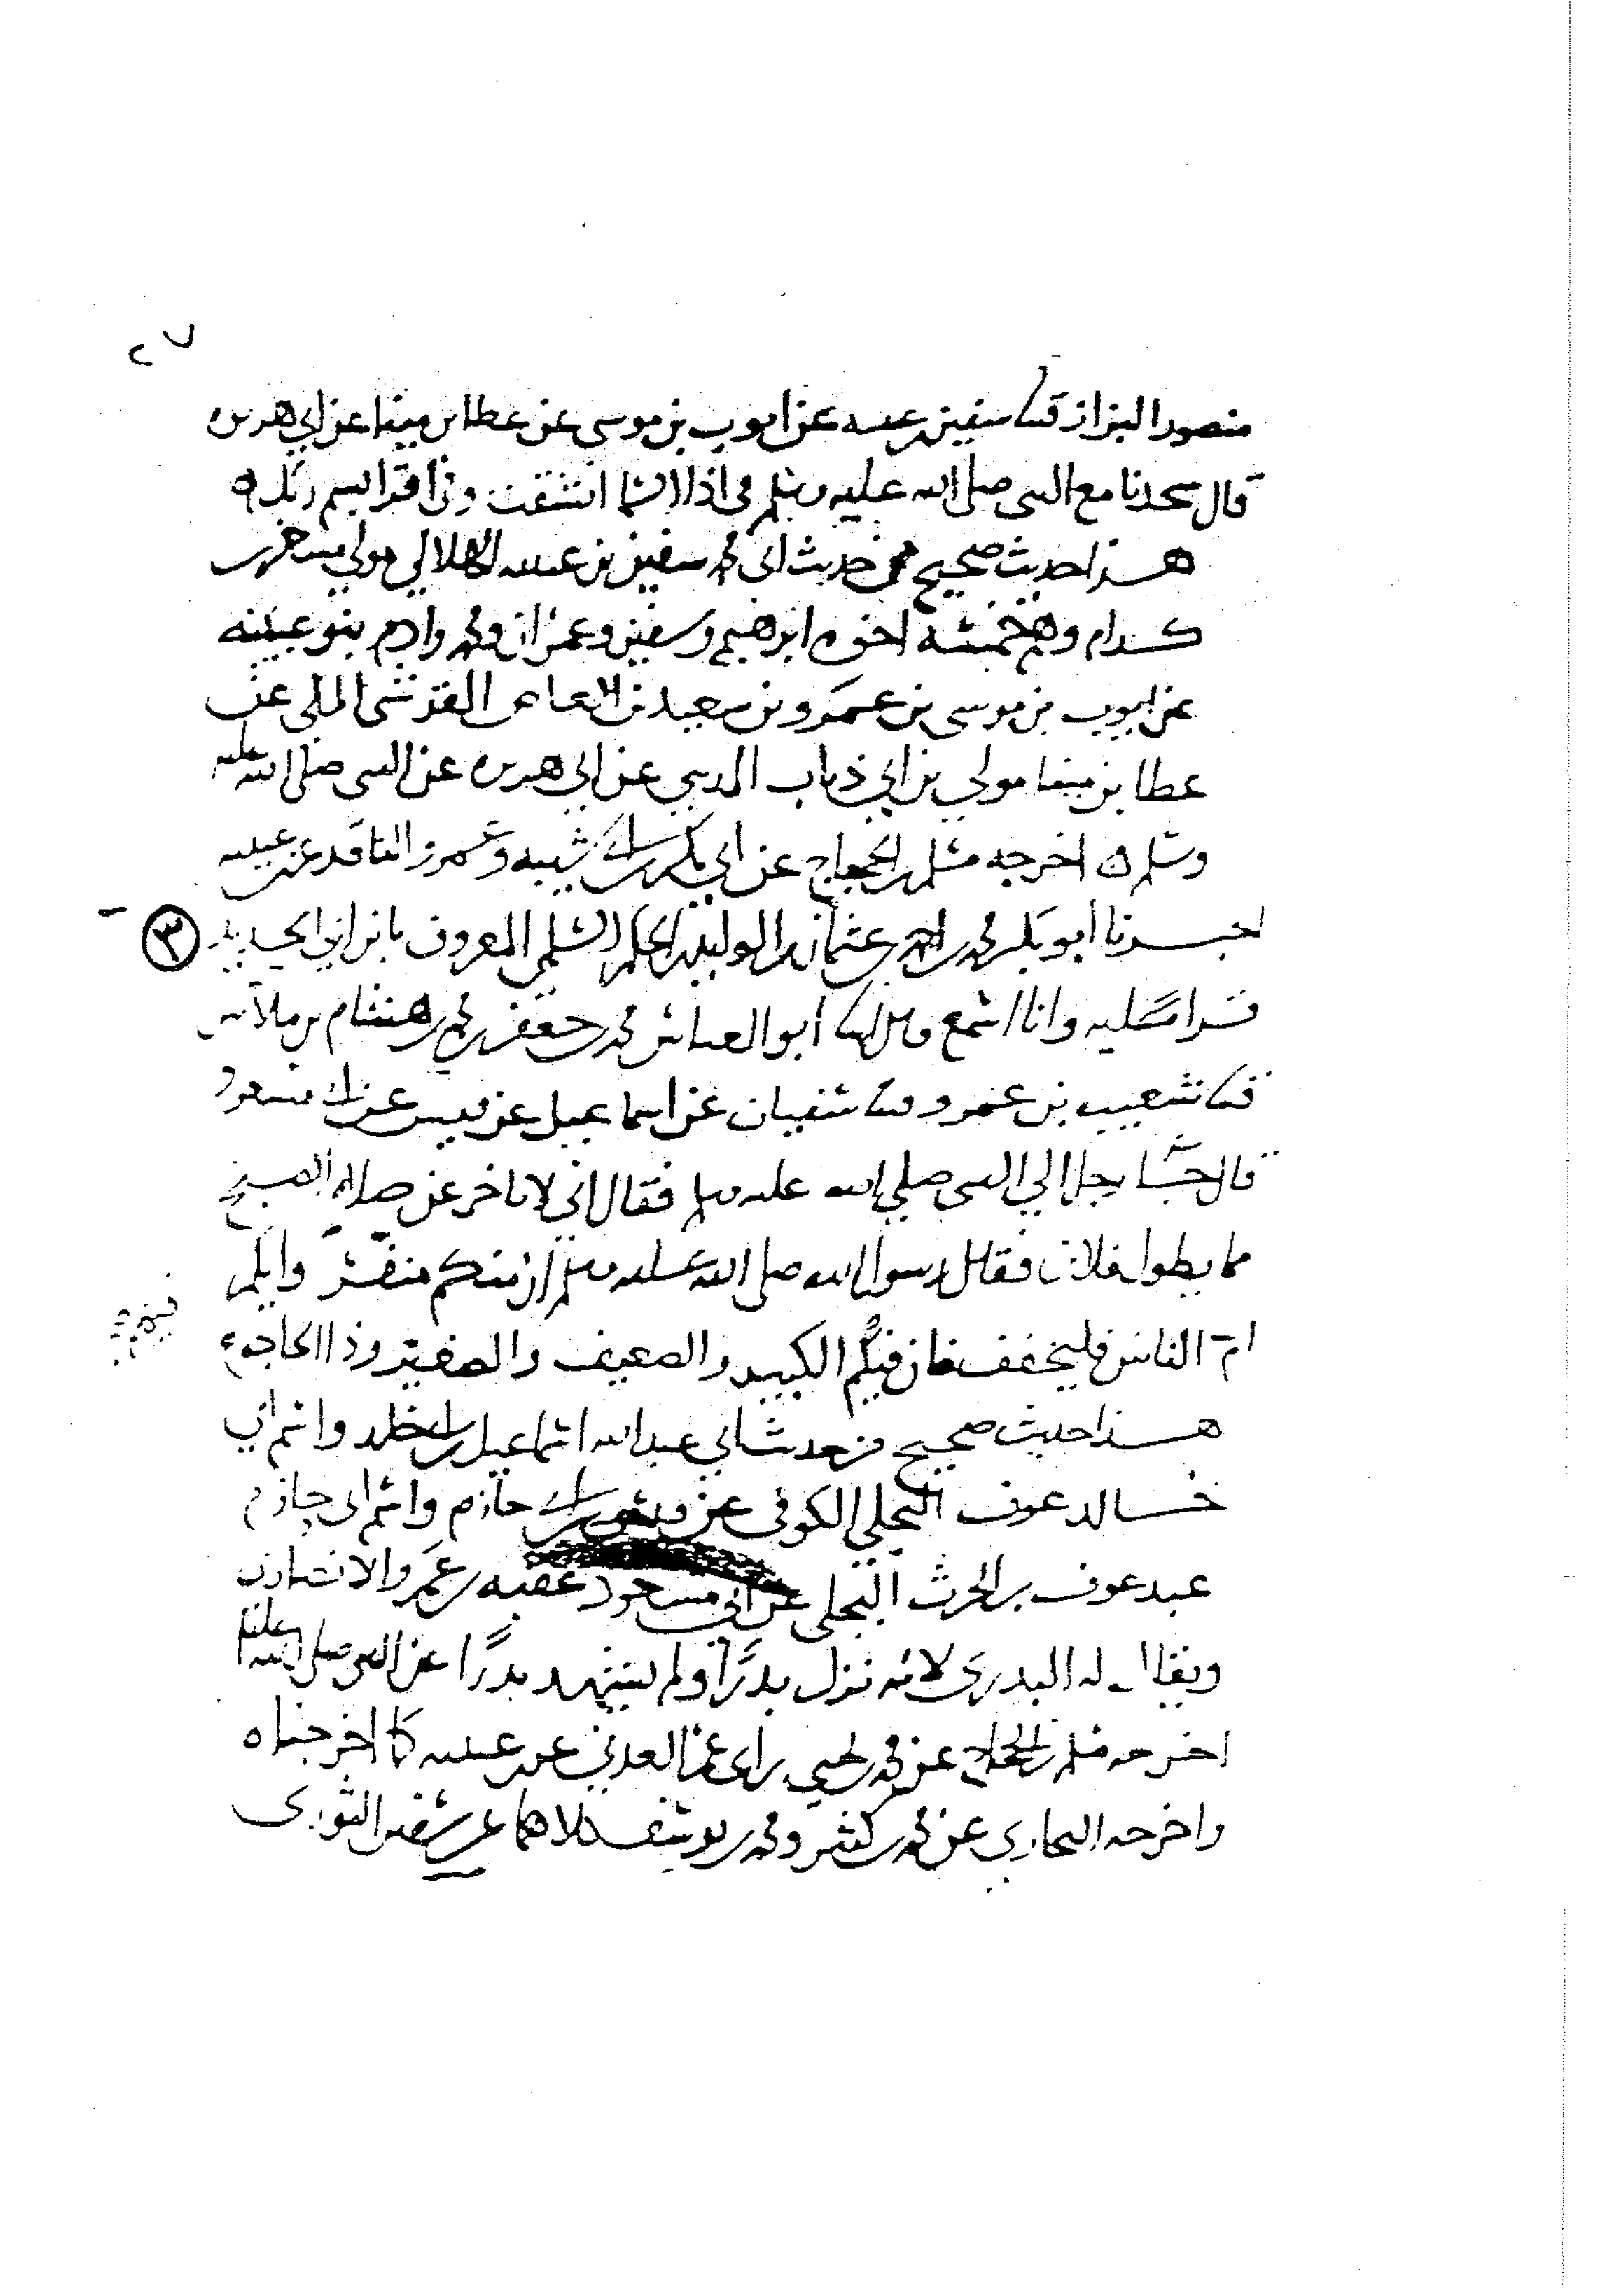 ٢٧
منصور البزاز قثنا سفين بن عيينه عن ايوب بن موسى عن عطا بن مينا عن ابي هريره
قال سجدنا مع النبي صلى الله عليه وسلم في اذا السما انشقت وفي اقرا بسم ربك ه
هذا حديث صحيح من حديث ابي محمد سفين بن عيينه الهلالي مولي مسعر بن
كدام وهم خمسه اخوه ابرهيم وسفين وعمران ومحمد وادم بنو عيينه
عن ايوب بن موسى بن عمرو بن سعيد بن العاص القرشي المكي عن
عطا بن مينا مولي بن ابي ذباب المديني عن ابي هريره عن النبي صلى الله عليه
وسلم ه اخرجه مسلم بن الحجاج عن ابي بكر بن ابي شيبه وعمرو الناقد عن بن عيينه
اخبرنا ابو بكر محمد بن احمد بن عثمان بن الوليد بن الحكم السلمي المعروف بابن ابي الحديد
٣
قراة عليه وانا اسمع قال ابنا ابو العباس محمد بن جعفر بن محمد بن هشام بن ملاس
قثنا شعيب بن عمرو قثنا سفيان عن اسماعيل عن قيس عن ابي مسعود
قال جآ رجل الي النبي صلي الله عليه وسلم فقال اني لاتاخر عن صلاة الصبح
مما يطول فلان فقال رسول الله صلى الله عليه وسلم ان منكم منفرين وايكم
ام الناس فليخفف فان فيكم الكبير والضعيف والصغير وذا الحاجه ه
هذا حديث صحيح من حديث ابي عبد الله اسماعيل بن ابي خلد واسم ابي
خالد عوف البجلي الكوفي عن قيس بن ابي حازم واسم ابي حازم
عبد عوف بن الحرث البجلي عن ابي مسعود عقبه بن عمرو الانصاري
ويقال له البدري لانه نزل بدرًا ولم يشهد بدرًا عن النبي صلى الله عليه
اخرجه مسلم بن الحجاج عن محمد بن يحيي بن ابي عمر العدني عن بن عيينه كما اخرجناه
واخرجه البخاري عن محمد بن كثير ومحمد بن يوسف كلاهما عن سفين الثوري